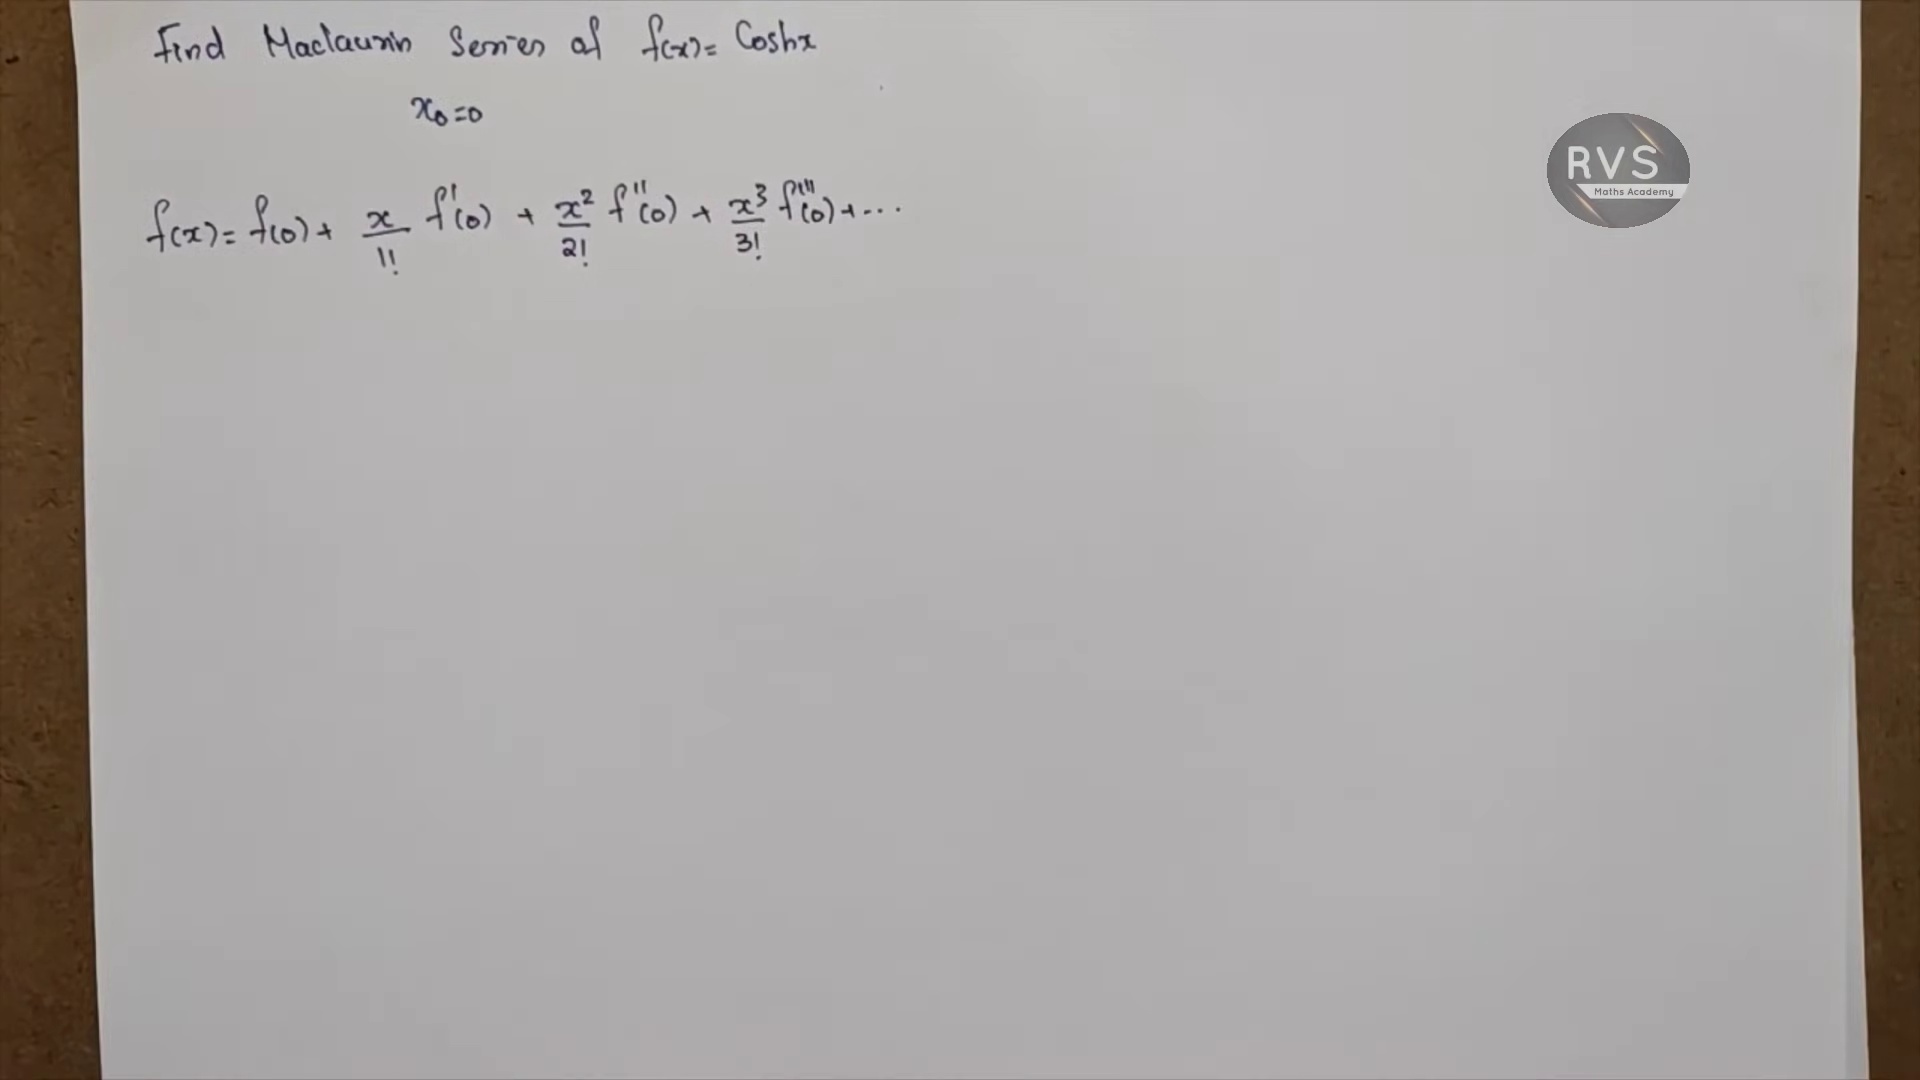 Find Maclaurin Series of f(x) = Coshx
x₀=0
f(x) = f(0) + x/1! f'(0) + x²/2! f''(0) + x³/3! f'''(0) + ...
RVS
Maths Academy